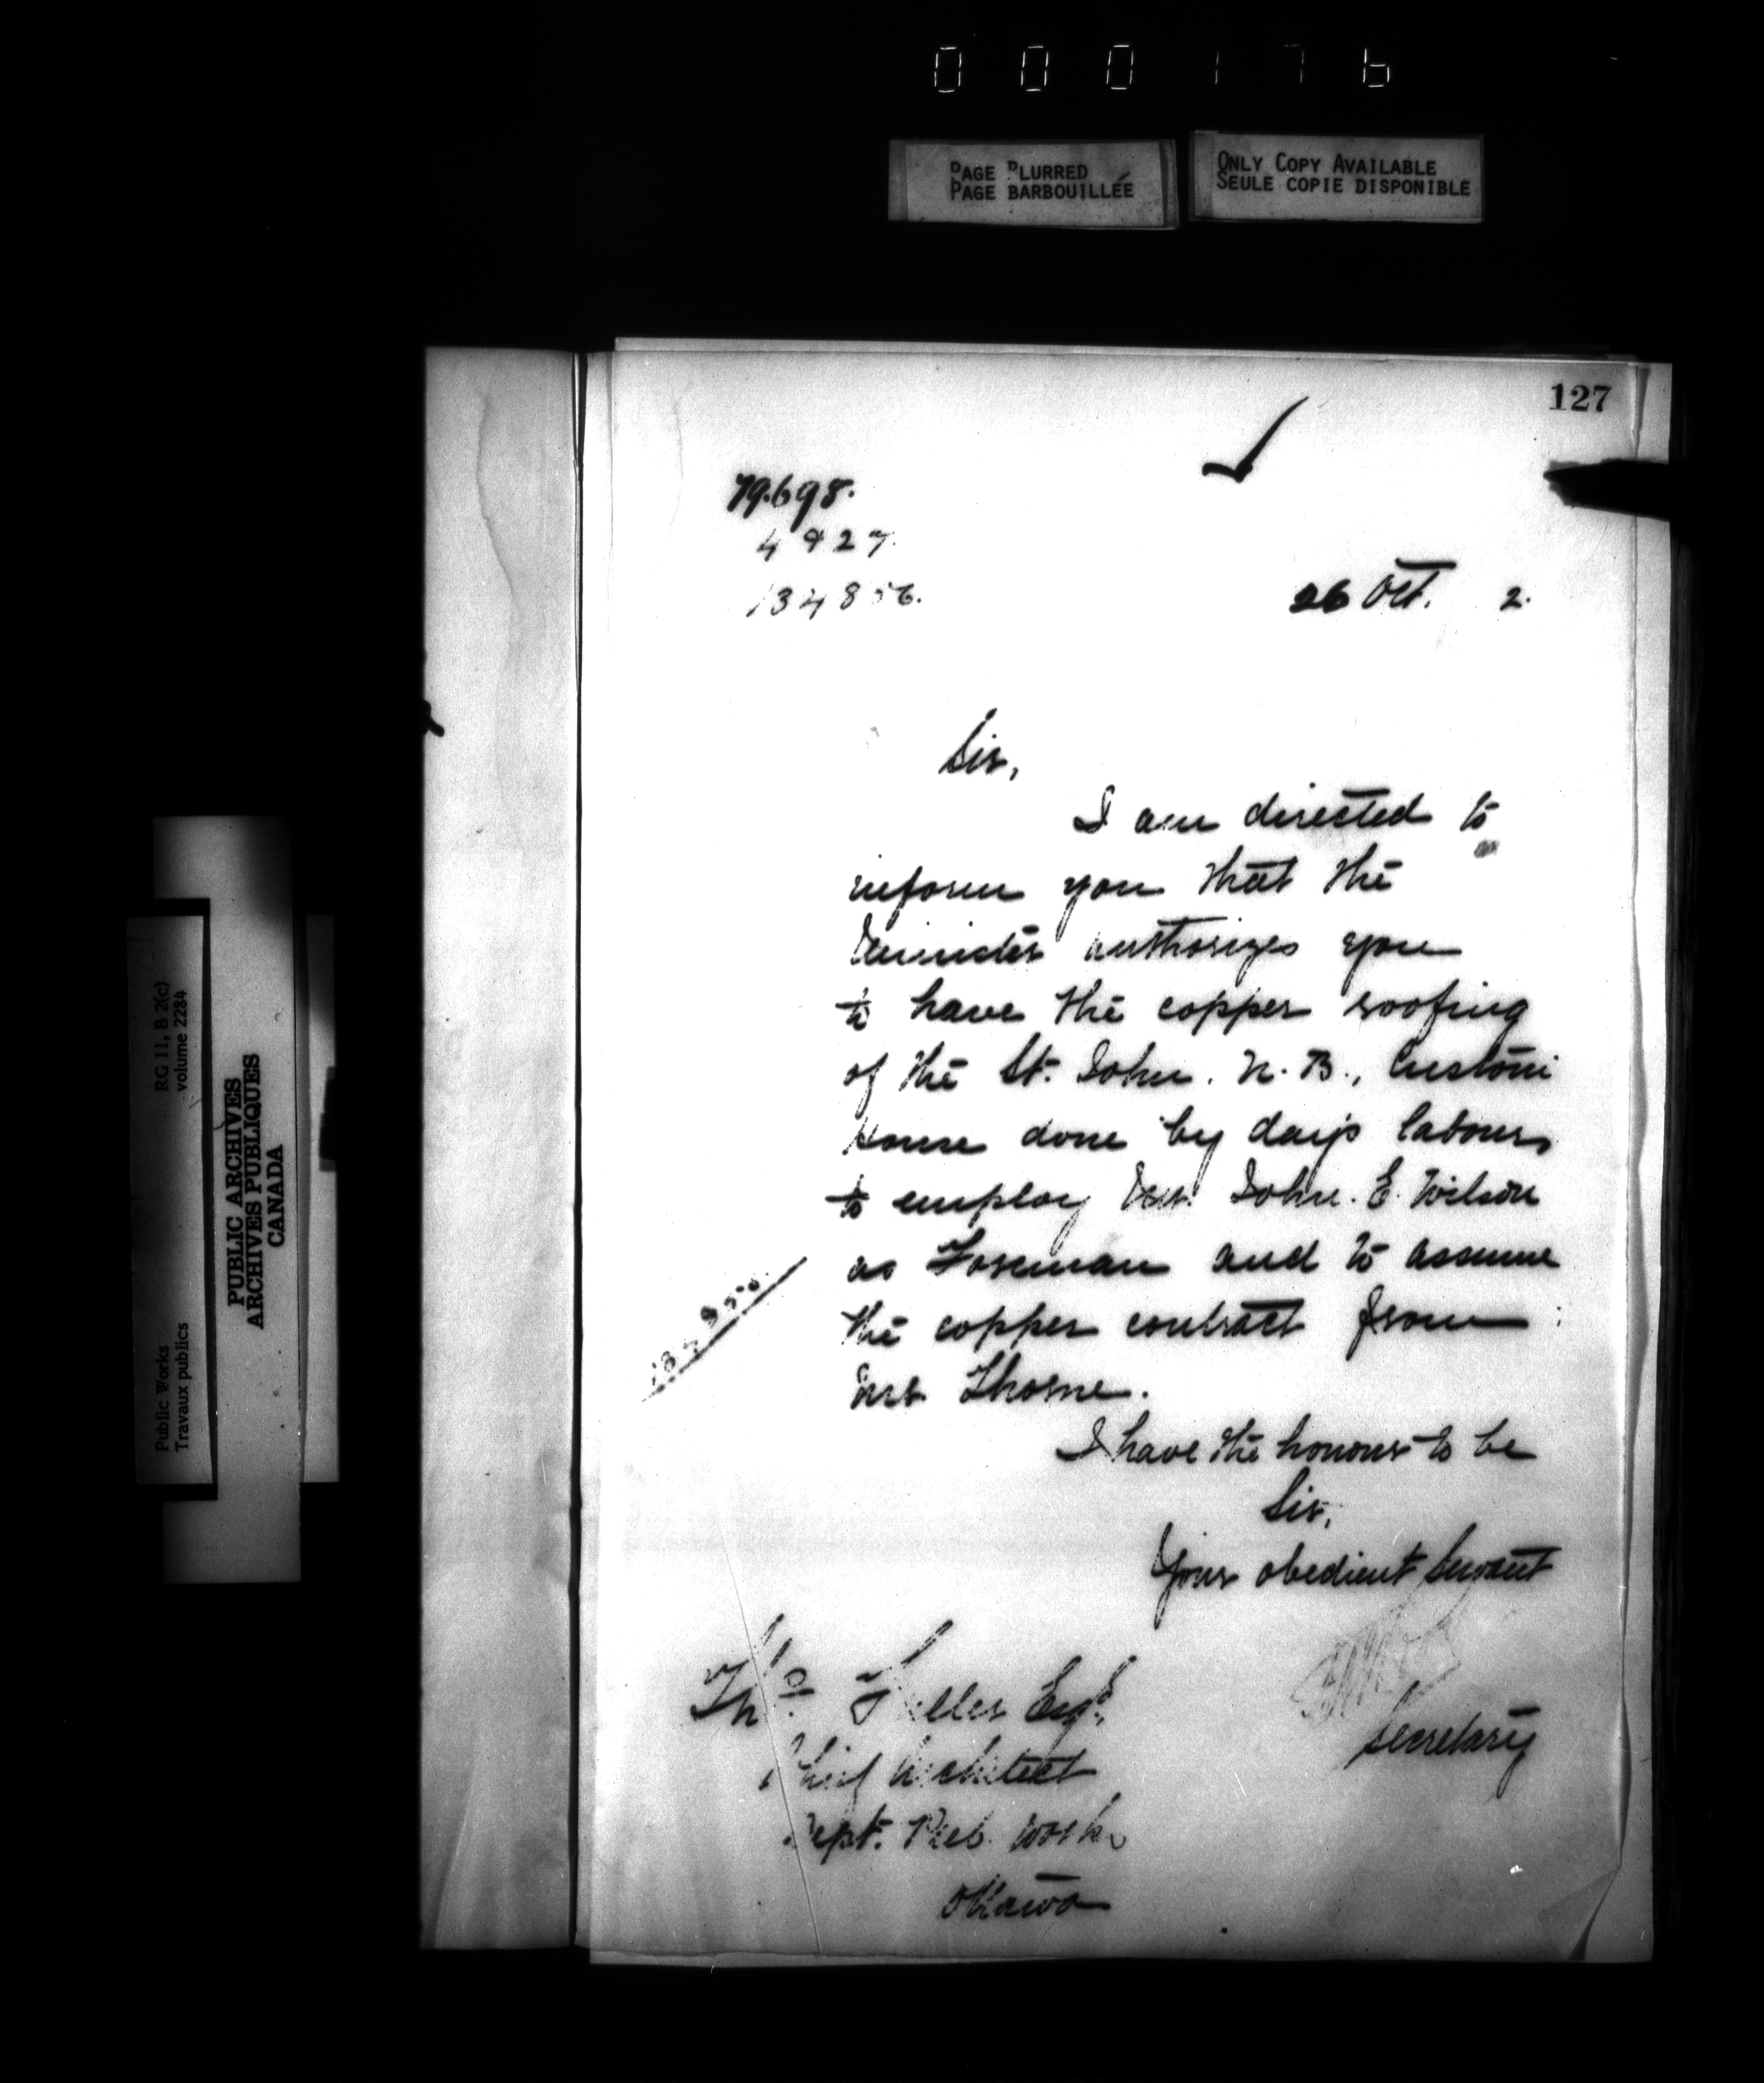 000176
PAGE BLURRED
PAGE BARBOUILLÉE
ONLY COPY AVAILABLE
SEULE COPIE DISPONIBLE
127
79.698.
4927
134856.
26 Oct. 2.
Sir,
I am directed to
inform you that the
Minister authorizes you
to have the copper roofing
of the St. John. N. B., Custom
House done by day's labour,
to employ Mr. John. E. Wilson
as Foreman and to assume
the copper contract from
Mr. Thorne.
I have the honour to be
Sir,
Your obedient Servant
Secretary
Thos. Fuller Esqr.
Chief Architect
Dept. Pub. Works
Ottawa
Public Works
Travaux publics
RG 11, B 2(c)
volume 2284
PUBLIC ARCHIVES
ARCHIVES PUBLIQUES
CANADA